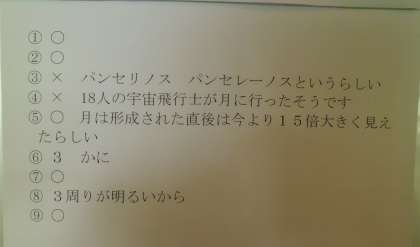 ① ○
② ○
③ × パンセリノス パンセレーノスというらしい
④ × 18人の宇宙飛行士が月に行ったそうです
⑤ ○ 月は形成された直後は今より１５倍大きく見え
たらしい
⑥ ３ かに
⑦ ○
⑧ ３周りが明るいから
⑨ ○